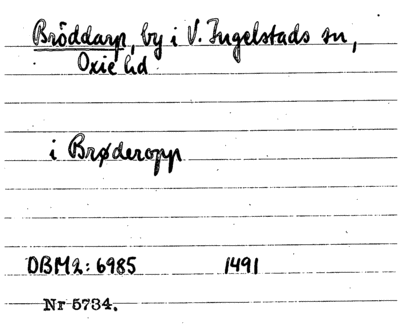 Bröddarp, by i V. Ingelstads sn,
Oxie hd
i Brøderopp
DBM2: 6985 1491
Nr 5734.